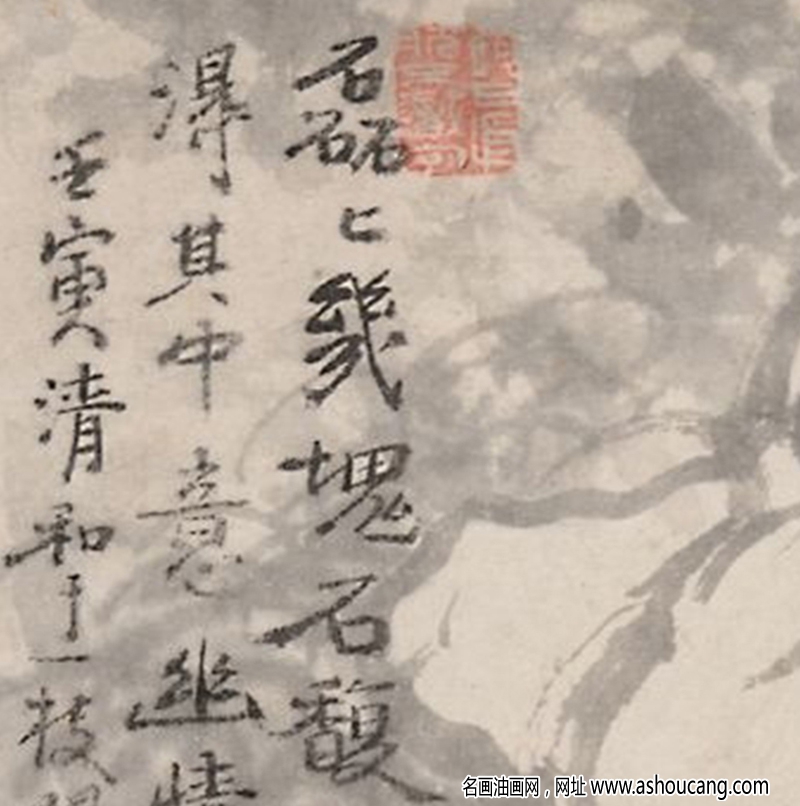 磊々幾塊石馥
得其中意幽情
壬寅清和于一枝
名画油画网，网址 www.ashoucang.com